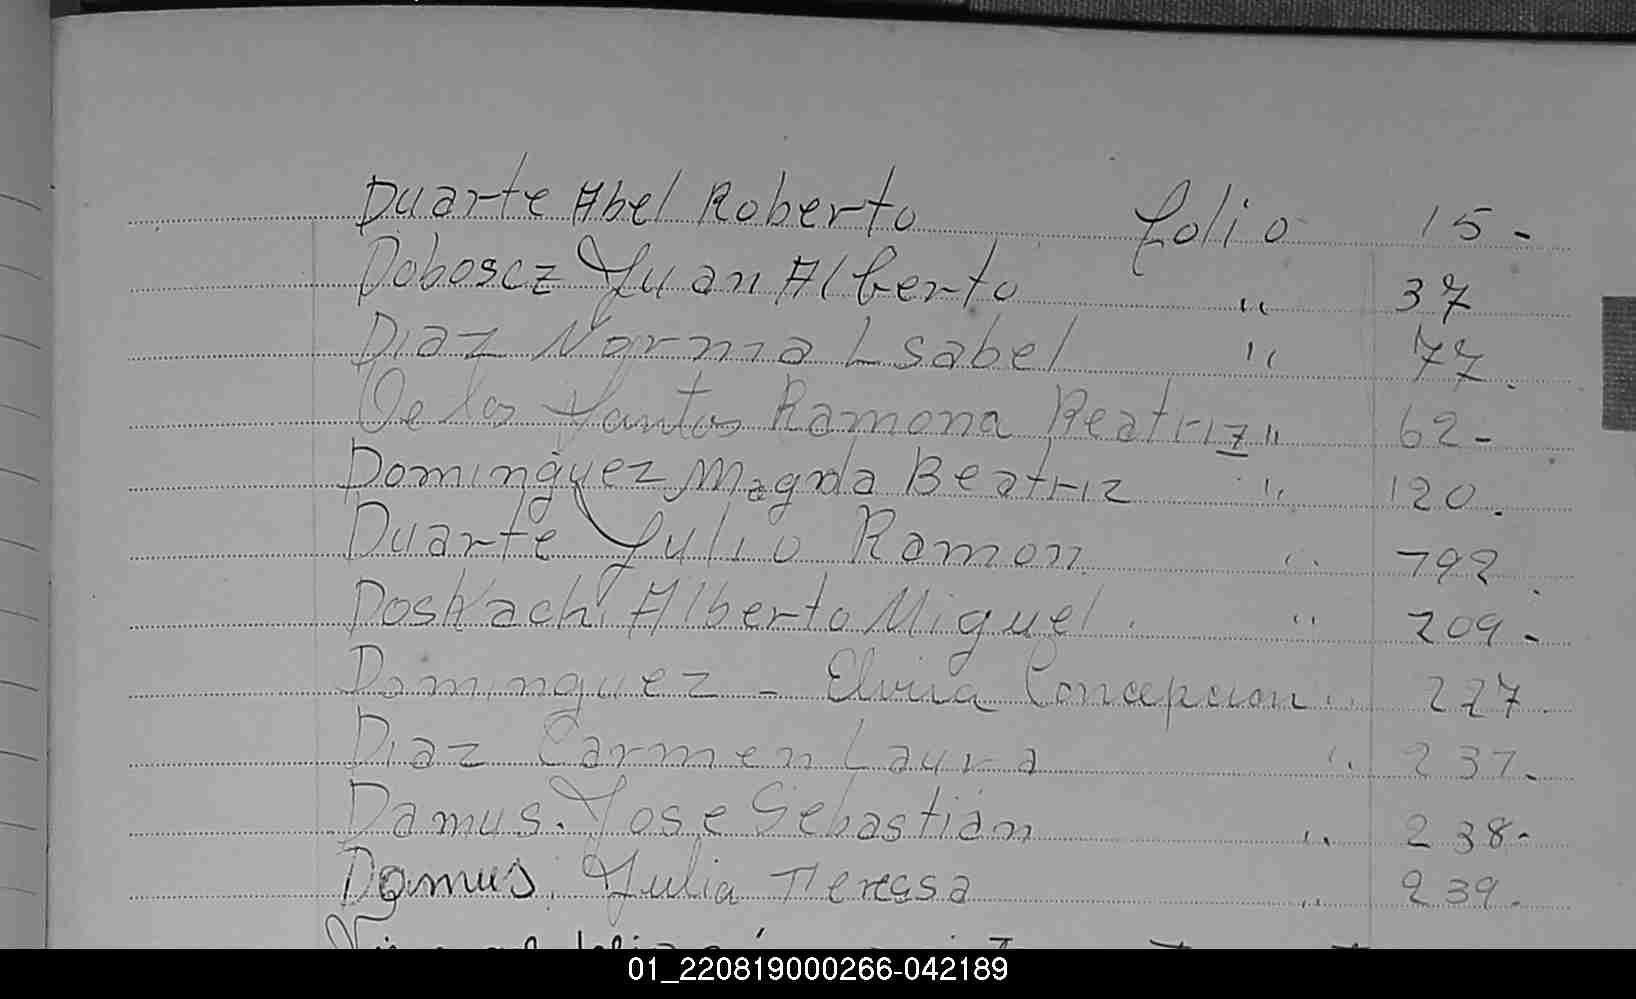 Duarte Abel Roberto folio 15-
Doboscz Juan Alberto " 37
Diaz Norma Isabel " 77.
De los Santos Ramona Beatriz " 62-
Dominguez Magda Beatriz " 120.
Duarte Julio Ramon " 192
Doskach Alberto Miguel " 209-
Dominguez - Elviria Concepcion " 227.
Diaz Carmen Laura " 237-
Damus. Jose Sebastián " 238-
Damus. Julia Teressa " 239.
01_220819000266-042189